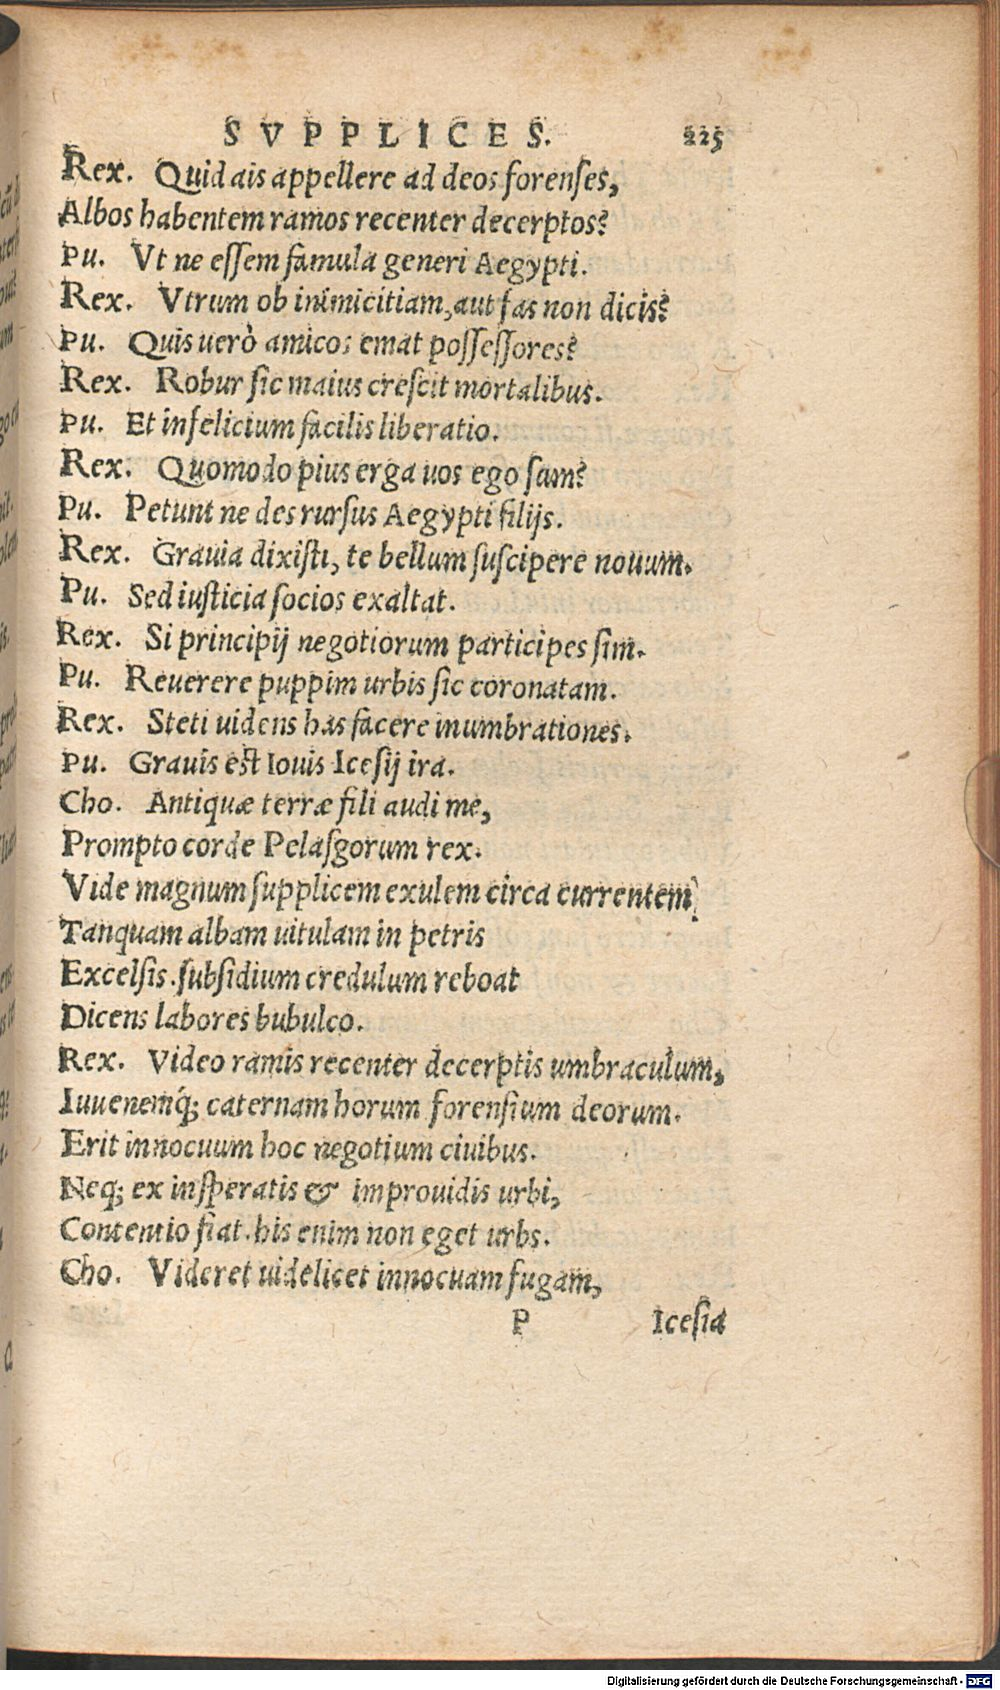 SVPPLICES. 225
Rex. Quid ais appellere ad deos forenses,
Albos habentem ramos recenter decerptos?
Pu. Vt ne essem famula generi Aegypti.
Rex. Vtrum ob inimicitiam, aut fas non dicis?
Pu. Quis uerò amicos emat possessores?
Rex. Robur sic maius crescit mortalibus.
Pu. Et infelicium facilis liberatio.
Rex. Quomodo pius erga uos ego sam?
Pu. Petunt ne des rursus Aegypti filijs.
Rex. Grauia dixisti, te bellum suscipere nouum.
Pu. Sed iusticia socios exaltat.
Rex. Si principij negotiorum participes sim.
Pu. Reuerere puppim urbis sic coronatam.
Rex. Steti uidens has facere inumbrationes.
Pu. Grauis est Iouis Icesij ira.
Cho. Antiquæ terræ fili audi me,
Prompto corde Pelasgorum rex.
Vide magnum supplicem exulem circa currentem,
Tanquam albam uitulam in petris
Excelsis. subsidium credulum reboat
Dicens labores bubulco.
Rex. Video ramis recenter decerptis umbraculum,
Iuuenemq́; caternam horum forensium deorum.
Erit innocuum hoc negotium ciuibus.
Neq; ex insperatis & improuidis urbi,
Contentio fiat. his enim non eget urbs.
Cho. Videret uidelicet innocuam fugam,
P Icesia
Digitalisierung gefördert durch die Deutsche Forschungsgemeinschaft - DFG